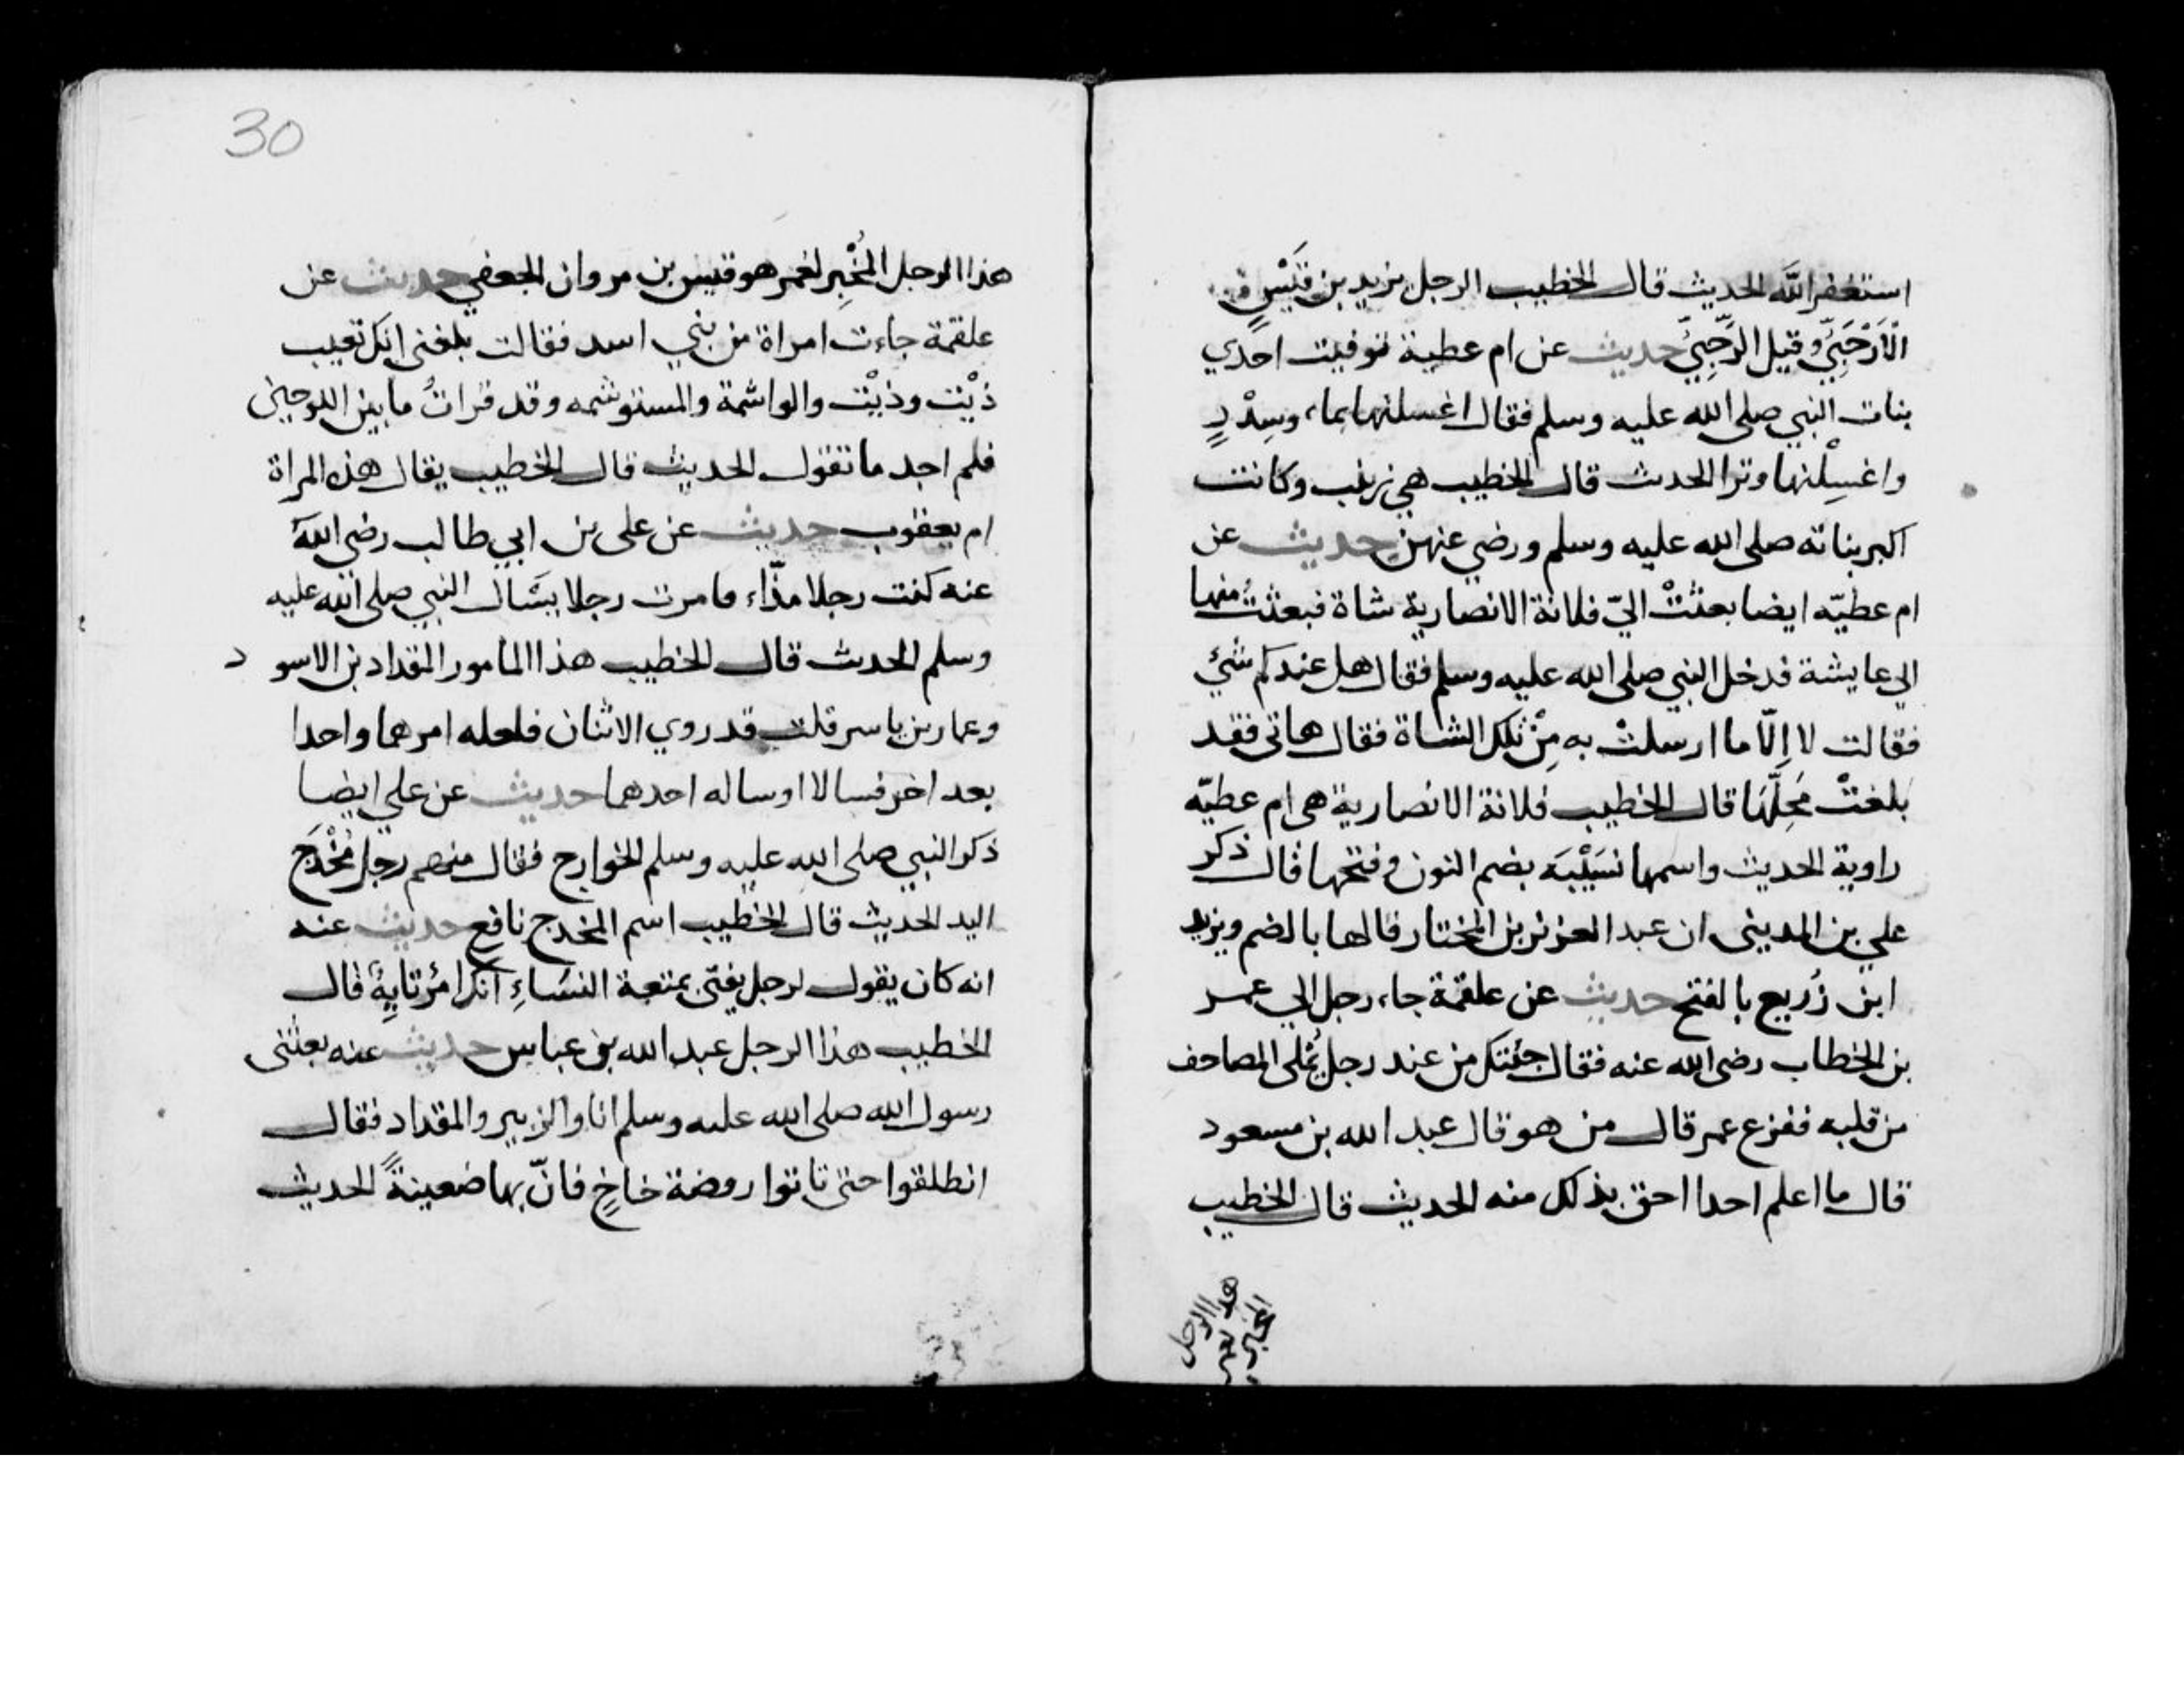 استغفر الله الحديث قال الخطيب الرجل يزيد بن قَيْسٍ
الْاَرْحَبِيّ وقيل الرَّحَبِيّ حديث عن ام عطية توفيت احدي
بنات النبي صلى الله عليه وسلم فقال اغسلنها بماء وسِدْرٍ
واغسِلْنها وترا الحدث قال الخطيب هي زينب وكانت
اكبر بناته صلى الله عليه وسلم ورضي عنهن حديث عن
ام عطيّه ايضا بعثتْ اليّ فلانة الانصارية شاة فبعثتُ منها
الى عايشة فدخل النبي صلى الله عليه وسلم فقال هل عندكم شئ
فقالت لا اِلّا ما ارسلتْ به مِنْ تلك الشاة فقال هاتى فقد
بلغتْ مَحِلَّهَا قال الخطيب فلانة الانصارية هي ام عطيّه
راوية الحديث واسمها نسَيْبَه بضم النون وفتحها قال ذكر
علي بن المديني ان عبد العزيز بن المختار قالها بالضم ويزيد
ابن زُريع بالفتح حديث عن علقمة جاء رجل الي عمر
بن الخطاب رضى الله عنه فقال جئتك من عند رجل يُملى المصاحف
من قلبه ففزع عمر قال من هو قال عبد الله بن مسعود
قال ما اعلم احدا احق بذلك منه الحديث قال الخطيب
هذا الرجل
المخبر لعمر
30
هذا الرجل المُخْبِر لعمر هو قيس بن مروان الجعفي حديث عن
علقمة جاءت امراة من بني اسد فقالت بلغنى انك تعيب
ذيْت وذيْت والواشمة والمستوشمه وقد قراتُ ما بين اللوحين
فلم اجد ما تقول الحديث قال الخطيب يقال هذه المراة
ام يعقوب حديث عن على بن ابي طالب رضى الله
عنه كنت رجلا مذّاء فامرت رجلا يسَال النبي صلى الله عليه
وسلم الحدث قال الخطيب هذا المامور المقداد بن الاسود
وعمار بن ياسر قلت قد روي الاثنان فلعله امرهما واحدا
بعد اخر فسالا او ساله احدهما حديث عن علي ايضا
ذكر النبي صلى الله عليه وسلم الخوارج فقال منهم رجل مُخْدَج
اليد الحديث قال الخطيب اسم المخدج نافع حديث عنه
انه كان يقول لرجل يفتى بمتعة النسَاءِ انك امرُؤ تايِهٌ قال
الخطيب هذا الرجل عبد الله بن عباس حديث عنه بعثنى
رسول الله صلى الله عليه وسلم انا والزبير والمقداد فقال
انطلقوا حتى تاتوا روضة خاخٍ فانّ بها ضعينةً الحديث